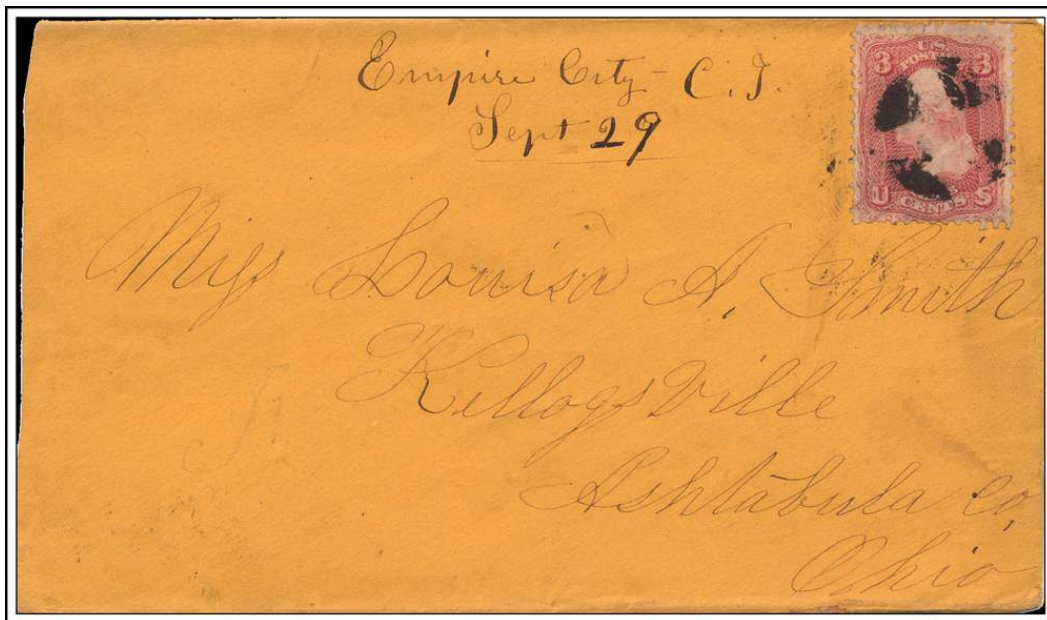 Empire City - C. T.
Sept 29
3 U.S. 3
POSTAGE
U CENTS S
Miss Louisa A. Smith
Kellogsville
Ashtabula Co,
Ohio